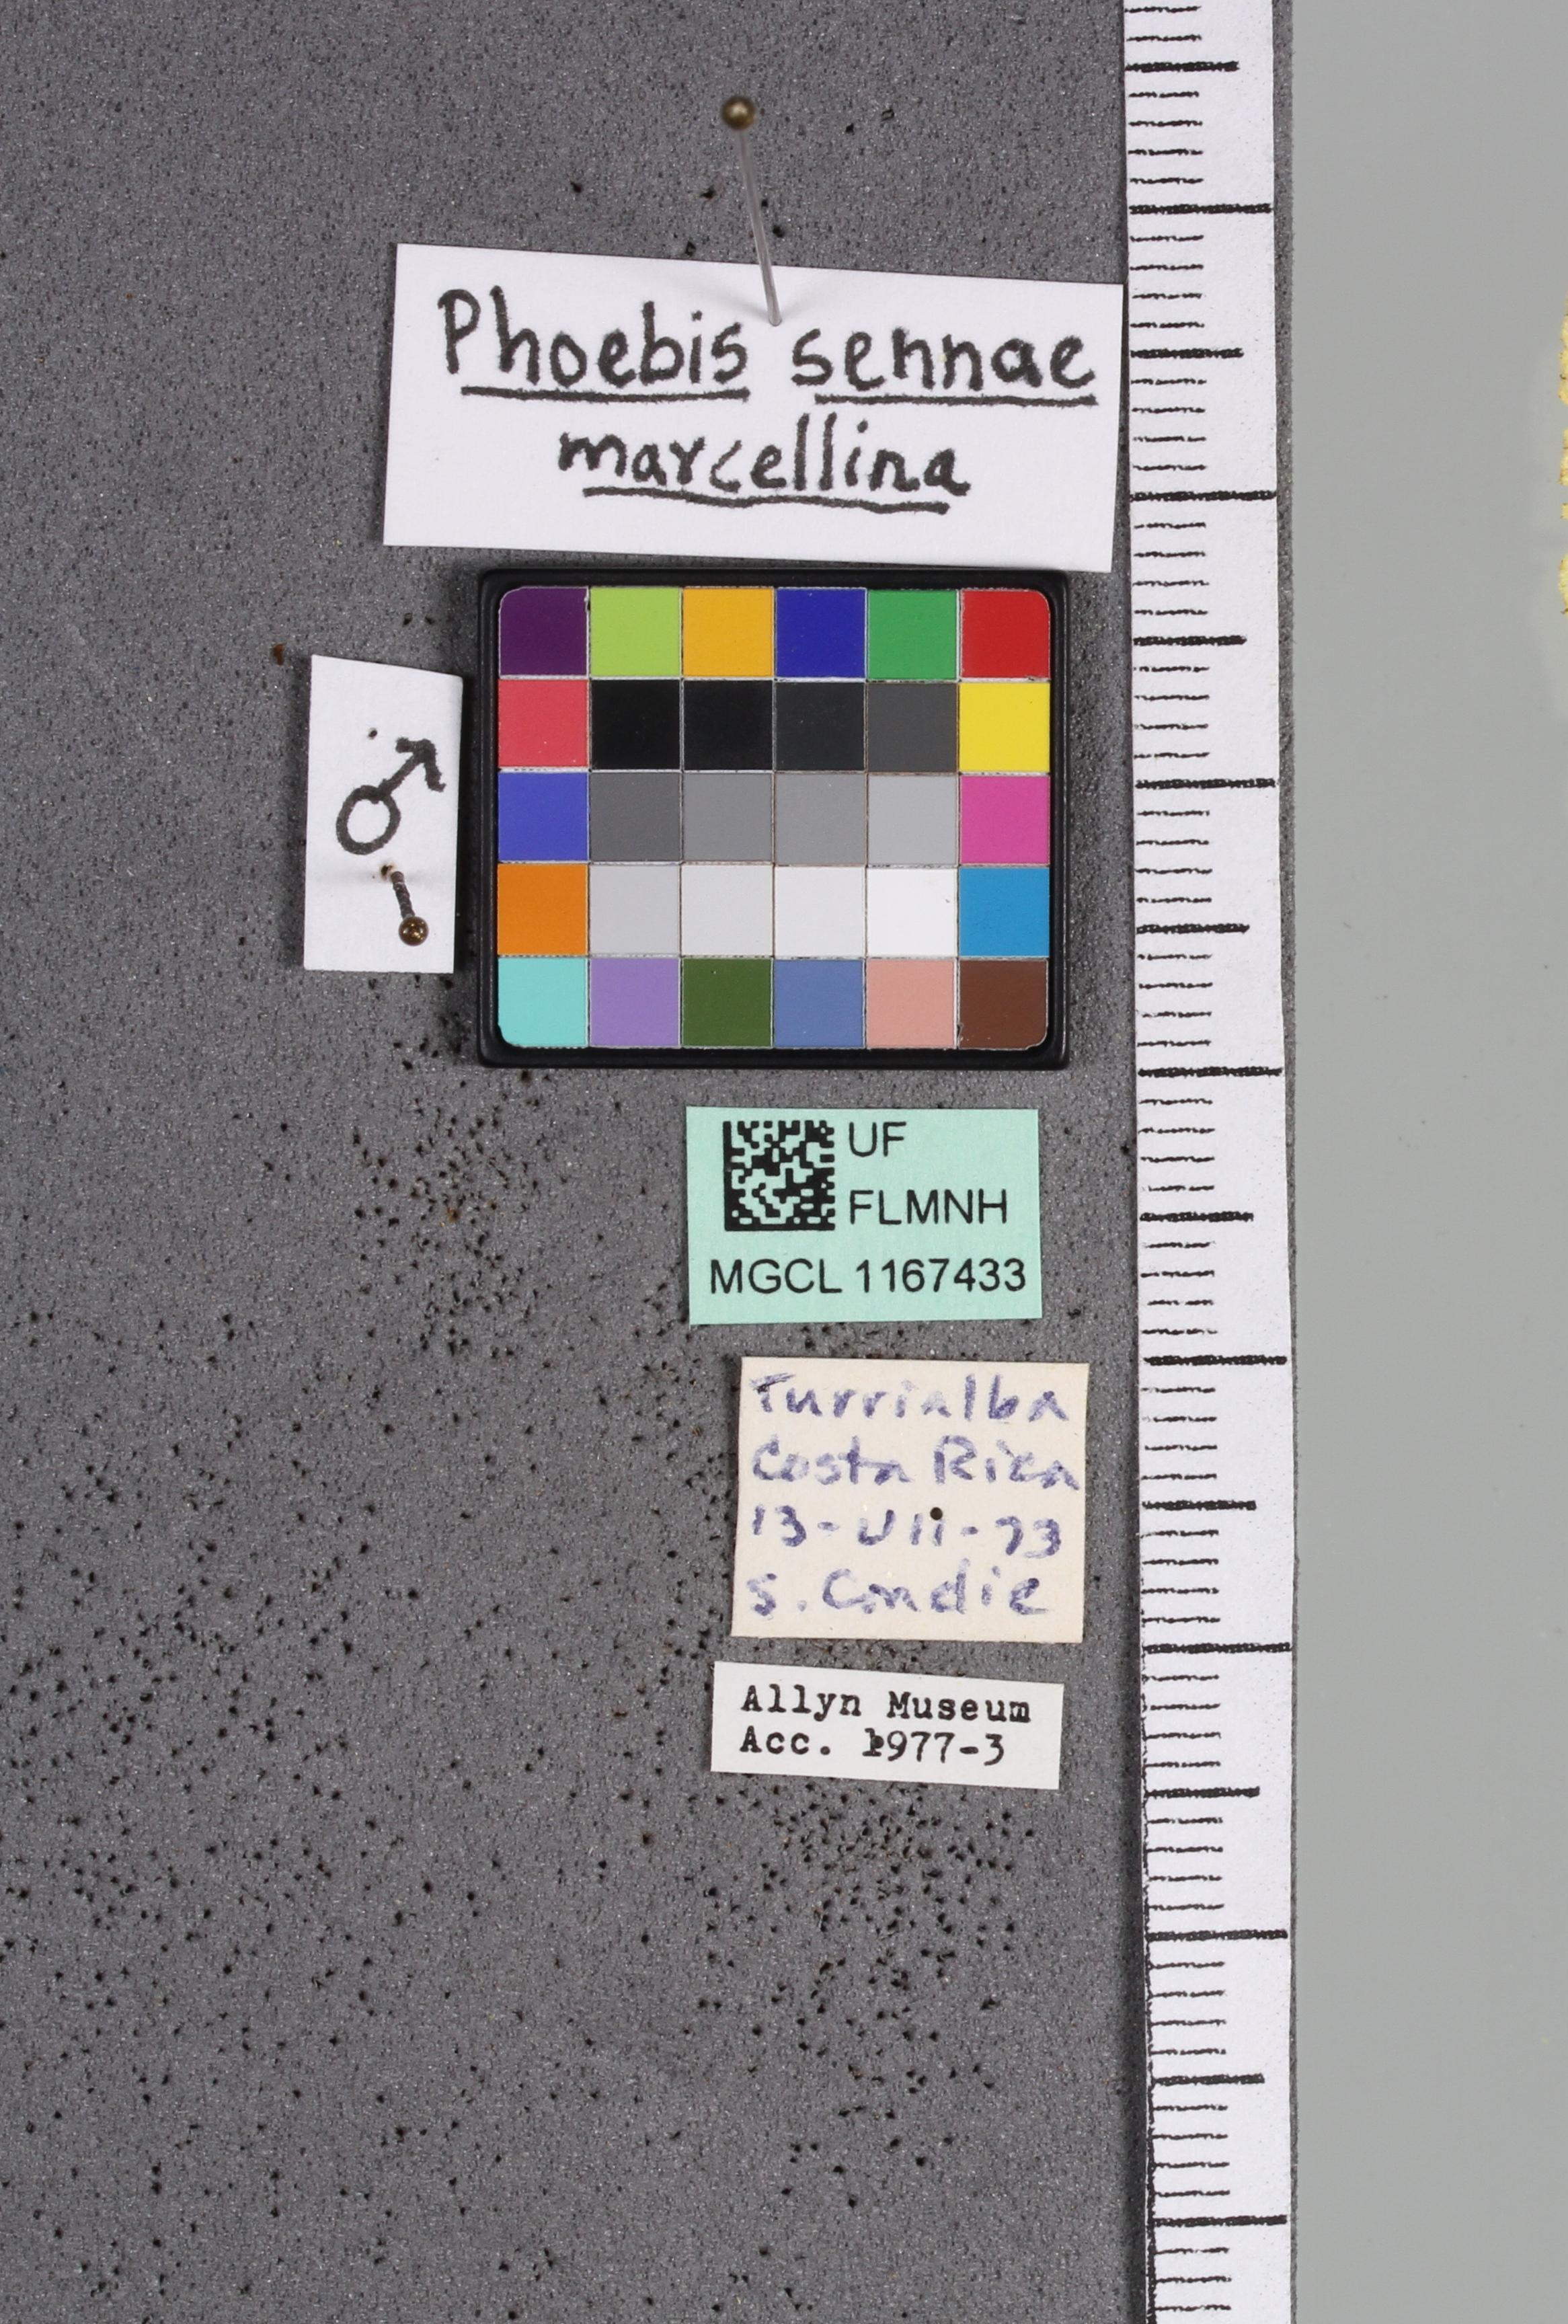 Phoebis sennae
marcellina
♂
UF
FLMNH
MGCL 1167433
Turrialba
Costa Rica
13-Vii-73
S. Condie
Allyn Museum
Acc. 1977-3